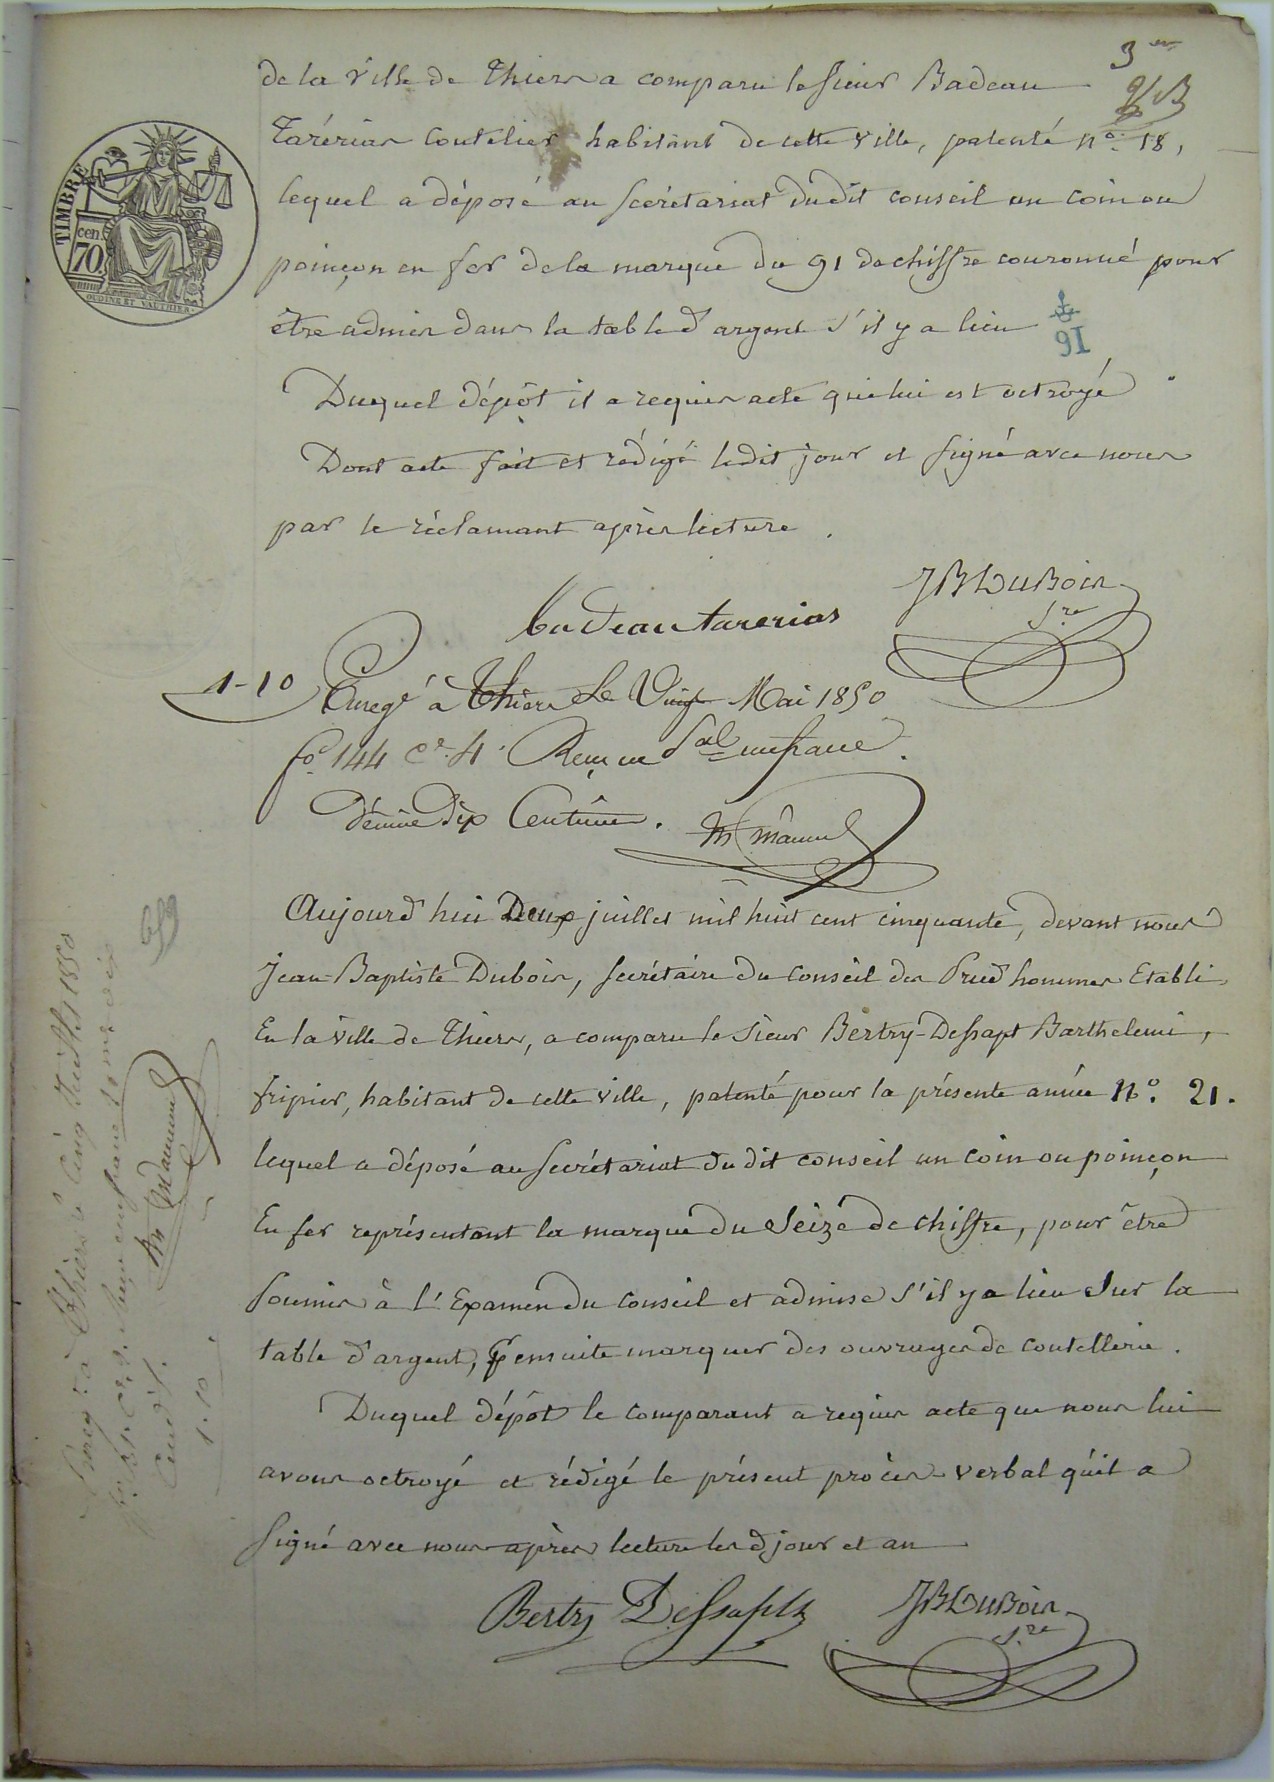 3me
de la ville de Thiers a comparu le sieur Badeau
Tarérias Coutelier habitant de cette ville, patenté n.o 18,
lequel a déposé au secrétariat du dit conseil un coin ou
poinçon en fer de la marque du 91 de chiffre couronné pour
être admis dans la table d'argent s'il y a lieu
91
Duquel dépôt il a requis acte que lui est octroyé
Dont acte fait et rédigé ledit jour et signé avec nous
par le réclamant après lecture.
TIMBRE
cen.
70
OUDINÉ ET VAUTHIER
JB Dubois
S.re
badeau tarerias
1-10
Enregé à Thiers le Vingt Mai 1850
fo 144 Ce 4. Reçu un franc
décime dix Centimes.
Aujourd'hui Deux juillet mil huit cent cinquante, devant nous
Jean-Baptiste Dubois, secrétaire du conseil des Prud'hommes Etabli
En la ville de Thiers, a comparu le sieur Bertry-Dessapt Barthelemi,
fripier, habitant de cette ville, patenté pour la présente année N.o 21.
lequel a déposé au secrétariat du dit conseil un coin ou poinçon
En fer représentant la marque du Seize de chiffre, pour être
soumis à l'Examen du conseil et admise s'il y a lieu sur la
table d'argent, pr ensuite marquer des ouvrages de coutellerie.
Duquel dépôt le comparant a requis acte que nous lui
avons octroyé et rédigé le présent procès-verbal qu'il a
signé avec nous après lecture les d. jour et an
Bertry Dessapt
JB Dubois
S.re
Enregé à Thiers le Cinq Juillet 1850
1.10